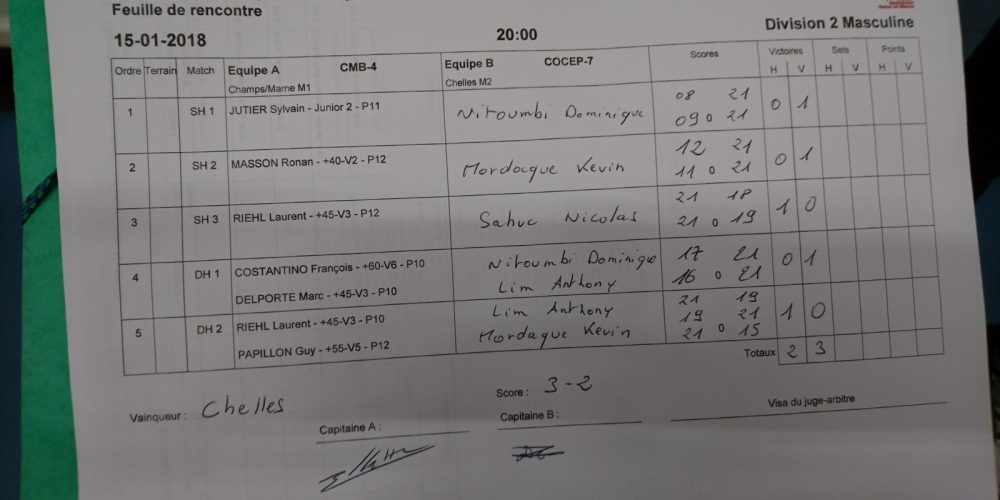 Feuille de rencontre
15-01-2018 20:00 Division 2 Masculine
Ordre Terrain Match Equipe A CMB-4 Equipe B COCEP-7 Scores Victoires Sets Points
Champs/Marne M1 Chelles M2 H V H V H V
1 SH 1 JUTIER Sylvain - Junior 2 - P11 Nitoumbi Dominique 08 21 0 1
09 0 21
2 SH 2 MASSON Ronan - +40-V2 - P12 Mordacque Kevin 12 21 0 1
11 0 21
3 SH 3 RIEHL Laurent - +45-V3 - P12 Sahuc Nicolas 21 18 1 0
21 0 19
4 DH 1 COSTANTINO François - +60-V6 - P10 Nitoumbi Dominique 17 21 0 1
DELPORTE Marc - +45-V3 - P10 Lim Anthony 16 0 21
5 DH 2 RIEHL Laurent - +45-V3 - P10 Lim Anthony 21 19 1 0
19 21
PAPILLON Guy - +55-V5 - P12 Mordaque Kevin 21 0 15
Totaux 2 3
Vainqueur : Chelles Score : 3-2 Visa du juge-arbitre
Capitaine A : Capitaine B :